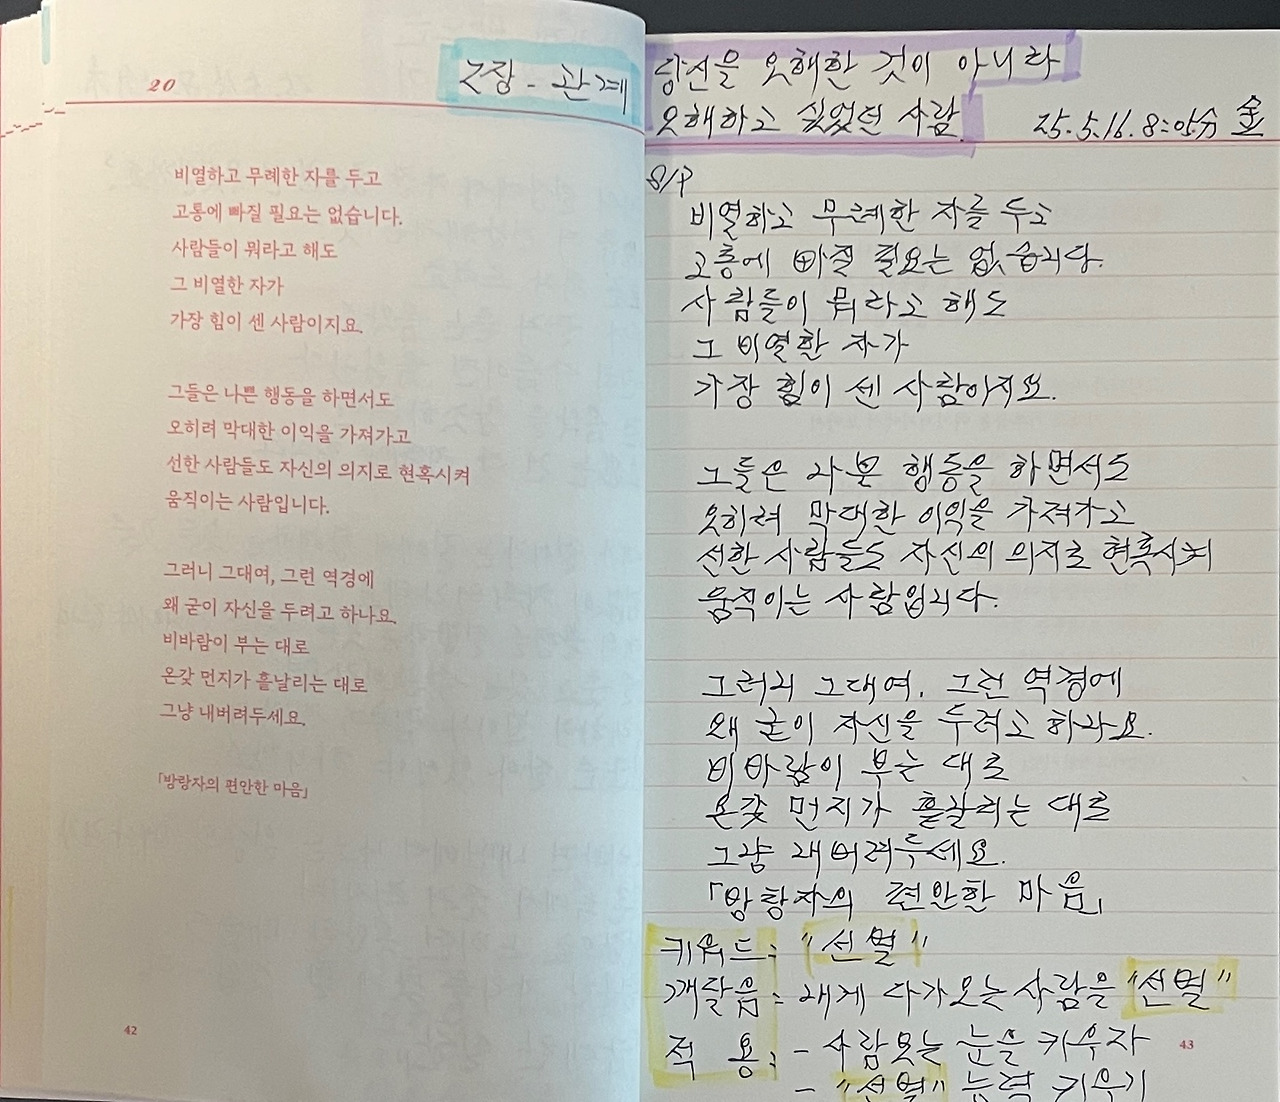 20
2장 - 관계
비열하고 무례한 자를 두고
고통에 빠질 필요는 없습니다.
사람들이 뭐라고 해도
그 비열한 자가
가장 힘이 센 사람이지요.
그들은 나쁜 행동을 하면서도
오히려 막대한 이익을 가져가고
선한 사람들도 자신의 의지로 현혹시켜
움직이는 사람입니다.
그러니 그대여, 그런 역경에
왜 굳이 자신을 두려고 하나요.
비바람이 부는 대로
온갖 먼지가 흩날리는 대로
그냥 내버려두세요.
「방랑자의 편안한 마음」
42
당신을 오해한 것이 아니라
오해하고 싶었던 사람.
25.5.16. 8:05分 金
8/P
비열하고 무례한 자를 두고
고통에 빠질 필요는 없습니다.
사람들이 뭐라고 해도
그 비열한 자가
가장 힘이 센 사람이지요.
그들은 나쁜 행동을 하면서도
오히려 막대한 이익을 가져가고
선한 사람들도 자신의 의지로 현혹시켜
움직이는 사람입니다.
그러니 그대여, 그런 역경에
왜 굳이 자신을 두려고 하나요.
비바람이 부는 대로
온갖 먼지가 흩날리는 대로
그냥 내버려두세요.
「방랑자의 편안한 마음」
키워드: "선별"
깨달음: 내게 다가오는 사람을 "선별"
적 용: - 사람보는 눈을 키우자
43
- "선별" 능력 키우기